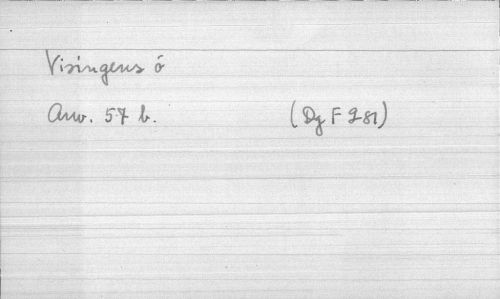 Visingens ó
Anv. 57 b. (Dg F 281)